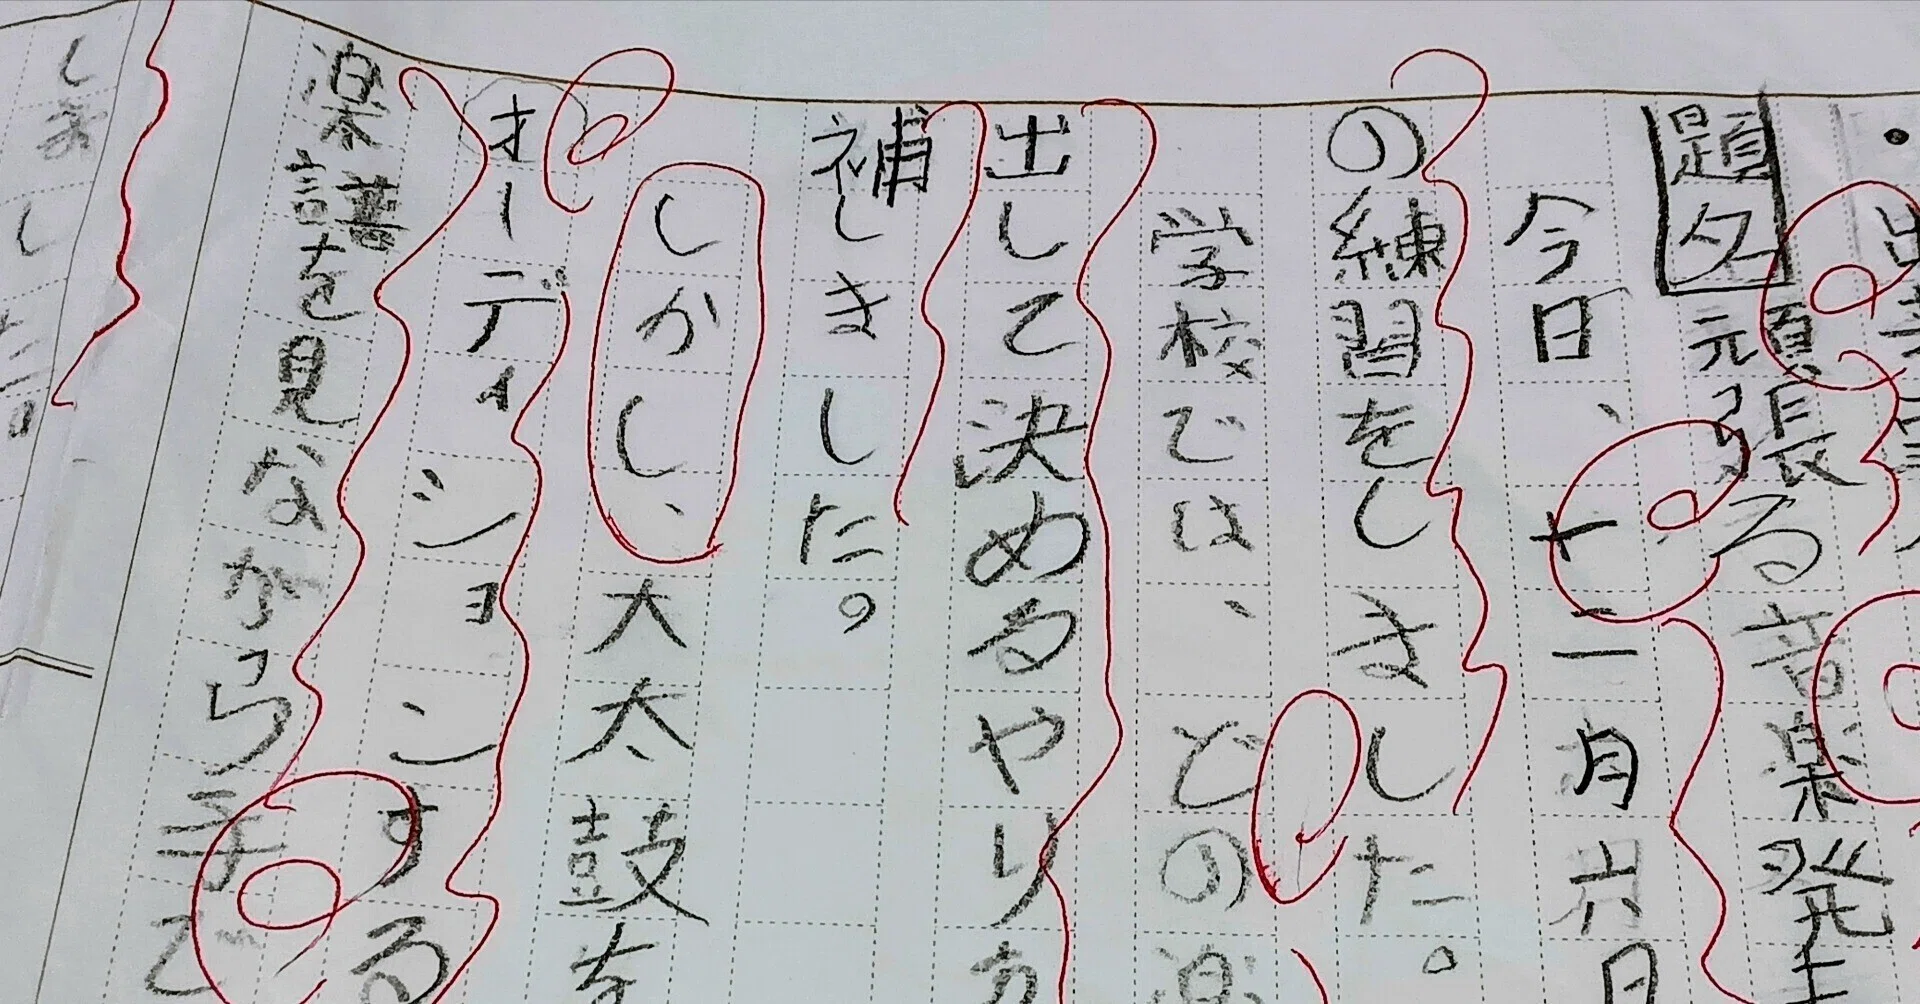 題名 頑張る音楽発
今日、十二月六日
の練習をしました。
学校では、どの楽
出して決めるやりか
補しました。
しかし、大太鼓を
オーディションする
楽譜を見ながら手で
しまし